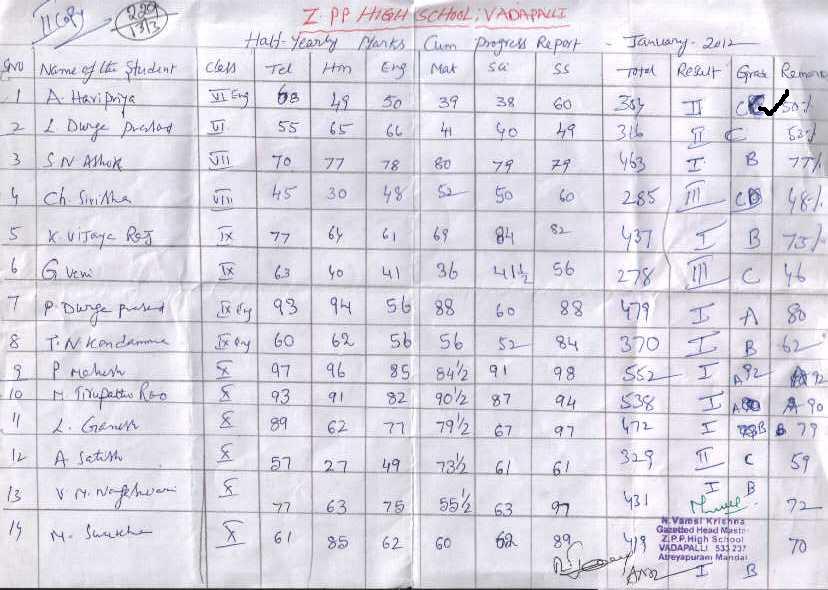 II Copy
229
13/3
Z.PP HIGH SCHOOL; VADAPALLI
Half-Yearly Marks Cum Progress Report - January-2012
SNO Name of the Student Class Tel Hin Eng Mat Sci SS Total Result Grade
1 A. Haripriya VI Eng 68 49 50 39 38 60 II 50%
2 L Durga prasad VI 55 65 66 41 40 49 316 II C 53%
3 S N Ashok VII 70 77 78 80 79 79 463 I B 77%
4 Ch. Sirisha VIII 45 30 48 52 50 60 285 III 48%
5 K. Vijaya Raj IX 77 64 61 69 84 82 437 I B 73%
6 G veni IX 63 40 41 36 41½ 56 278 III C 46
7 P. Durga prasad IX Eng 93 94 56 88 60 88 479 I A 80
8 T. N Kondamma IX Eng 60 62 56 56 52 84 370 I B 62
9 P Mahesh X 97 96 85 84½ 91 98 552 I A 92 A 92
10 M. Tirupatho Rao X 93 91 82 90½ 87 94 538 I A A-90
11 L. Ganesh X 89 62 77 79½ 67 97 472 I B B 79
12 A Satish X 57 27 49 73½ 61 61 329 II C 59
13 V M. Nageshwari X 77 63 75 55½ 63 97 431 I B 72
14 M. X 61 85 62 60 62 89 419 I B 70
N. Vamsi Krishna
Gazetted Head Master
Z.P.P.High School
VADAPALLI 533 237
Atreyapuram Mandal